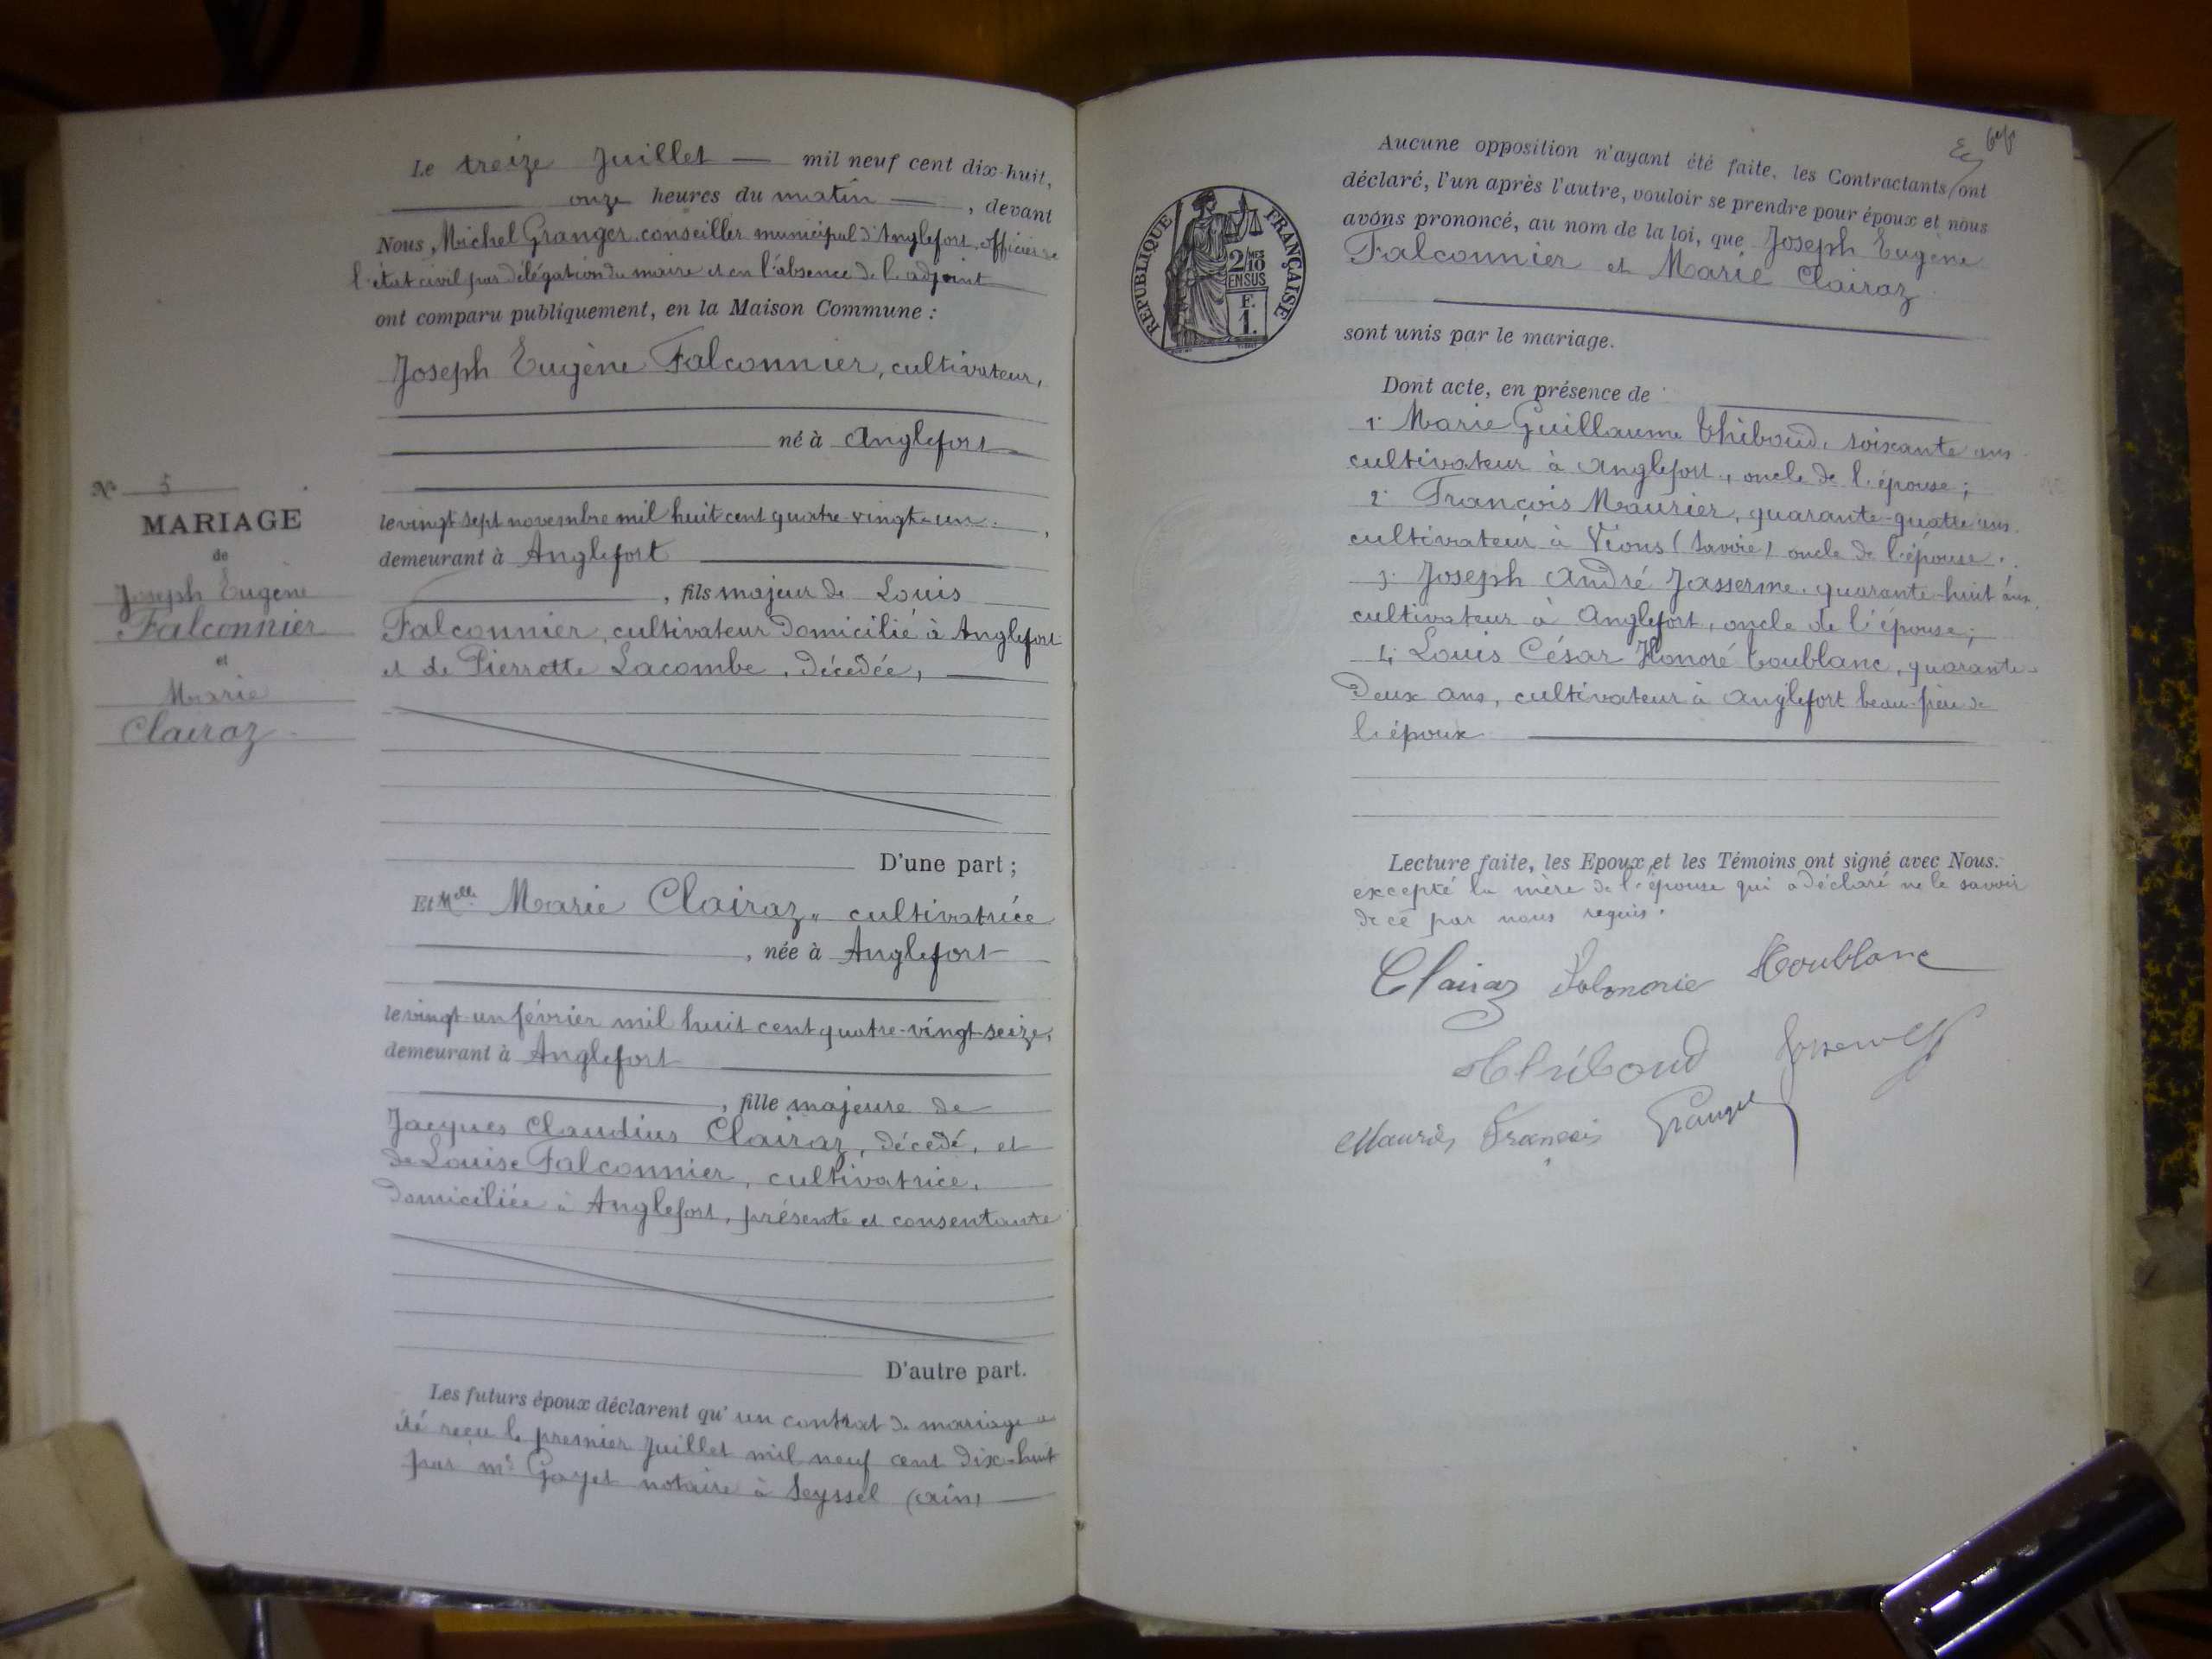 Le treize Juillet — mil neuf cent dix-huit,
onze heures du matin —, devant
Nous, Michel Granger, conseiller municipal d'Anglefort, officier de
l'état civil par délégation du maire et en l'absence de l'adjoint
ont comparu publiquement, en la Maison Commune :
Joseph Eugène Falconnier, cultivateur,
né à Anglefort
le vingt sept novembre mil huit cent quatre-vingt-un
demeurant à Anglefort
, fils majeur de Louis
Falconnier, cultivateur domicilié à Anglefort
et de Pierrette Lacombe, décédée,
D'une part ;
Et Melle Marie Clairaz, cultivatrice
, née à Anglefort
le vingt-un février mil huit cent quatre-vingt-seize,
demeurant à Anglefort
, fille majeure de
Jacques Claudius Clairaz, décédé, et
de Louise Falconnier, cultivatrice,
domiciliée à Anglefort, présente et consentante
D'autre part.
Les futurs époux déclarent qu'un contrat de mariage a
été reçu le premier Juillet mil neuf cent dix-huit
par Me Gayet notaire à Seyssel (Ain)
No 5
MARIAGE
de
Joseph Eugène
Falconnier
et
Marie
Clairaz
RÉPUBLIQUE FRANÇAISE
2/10 MES
EN SUS
F.
1.
Aucune opposition n'ayant été faite, les Contractants ont
déclaré, l'un après l'autre, vouloir se prendre pour époux et nous
avons prononcé, au nom de la loi, que Joseph Eugène
Falconnier et Marie Clairaz
sont unis par le mariage.
Dont acte, en présence de
1. Marie Guillaume Thiboud, soixante ans
cultivateur à Anglefort, oncle de l'épouse ;
2. François Maurier, quarante-quatre ans
cultivateur à Vions (Savoie) oncle de l'épouse.
3. Joseph André Jasserme, quarante-huit ans,
cultivateur à Anglefort, oncle de l'épouse ;
4. Louis César Honoré Toublanc, quarante-
deux ans, cultivateur à Anglefort beau-frère de
l'époux
Lecture faite, les Epoux et les Témoins ont signé avec Nous.
excepté la mère de l'épouse qui a déclaré ne le savoir
de ce par nous requis.
Clairaz Toublanc
Thiboud
Maurier François Granger